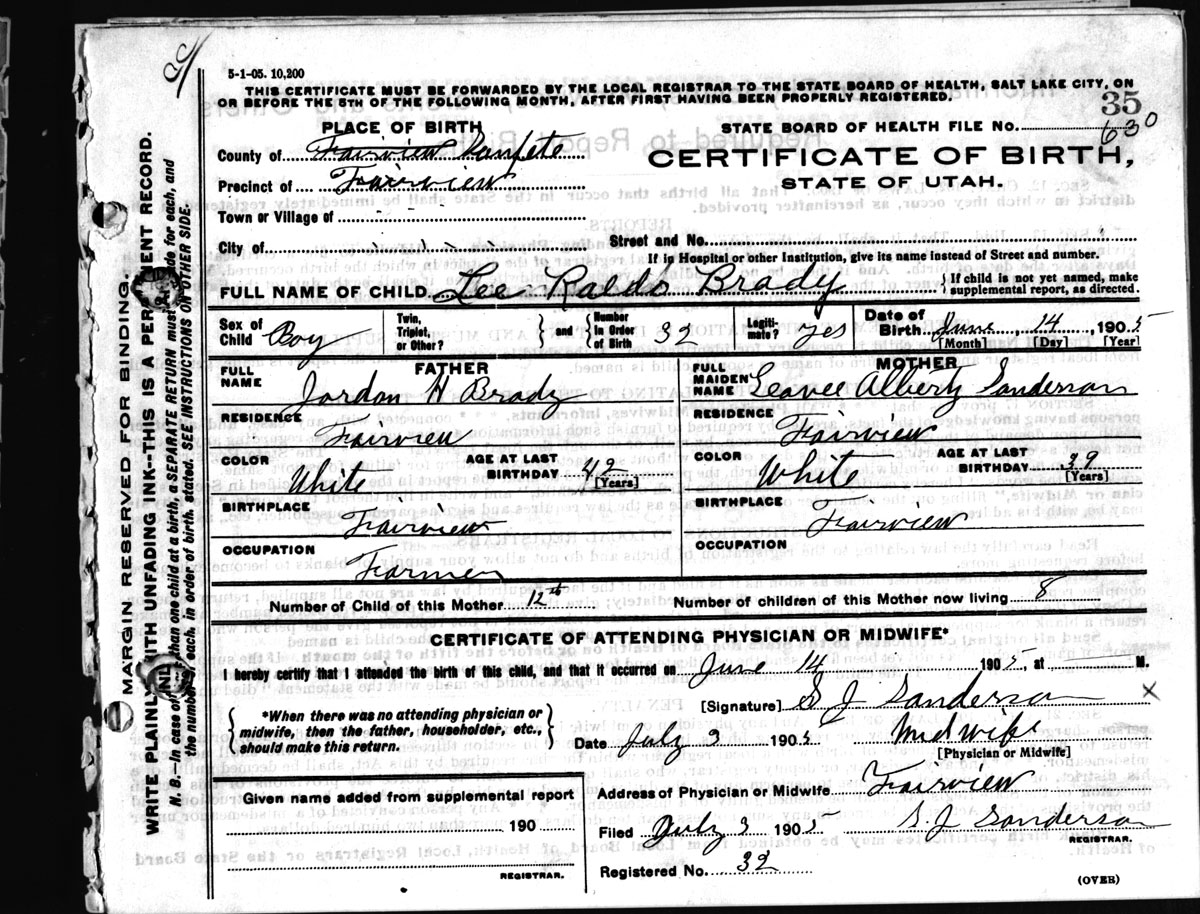 5-1-05. 10,200
THIS CERTIFICATE MUST BE FORWARDED BY THE LOCAL REGISTRAR TO THE STATE BOARD OF HEALTH, SALT LAKE CITY, ON
OR BEFORE THE 5TH OF THE FOLLOWING MONTH, AFTER FIRST HAVING BEEN PROPERLY REGISTERED.
35
PLACE OF BIRTH
STATE BOARD OF HEALTH FILE No. 630
County of Fairview Sanpete
CERTIFICATE OF BIRTH,
Precinct of Fairview
STATE OF UTAH.
Town or Village of
City of
Street and No.
If in Hospital or other Institution, give its name instead of Street and number.
FULL NAME OF CHILD Lee Raldo Brady
{ If child is not yet named, make
supplemental report, as directed.
Sex of Child Boy
Twin, Triplet, or Other? } and { Number in Order of Birth 32
Legiti-mate? yes
Date of Birth June, 14, 1905
[Month] [Day] [Year]
FATHER
FULL NAME Jordon H Brady
RESIDENCE
Fairview
COLOR White
AGE AT LAST BIRTHDAY 42
[Years]
BIRTHPLACE
Fairview
OCCUPATION
Farmer
MOTHER
FULL MAIDEN NAME Sanderson
RESIDENCE
Fairview
COLOR White
AGE AT LAST BIRTHDAY 39
[Years]
BIRTHPLACE
Fairview
OCCUPATION
Number of Child of this Mother 12th
Number of children of this Mother now living 8
CERTIFICATE OF ATTENDING PHYSICIAN OR MIDWIFE*
I hereby certify that I attended the birth of this child, and that it occurred on June 14 1905, at M.
{ *When there was no attending physician or
midwife, then the father, householder, etc.,
should make this return. }
[Signature] S J Sanderson X
Date July 3 1905 Midwife
[Physician or Midwife]
Given name added from supplemental report
190
REGISTRAR.
Address of Physician or Midwife Fairview
Filed July 3 1905 S. J Sanderson
REGISTRAR.
Registered No. 32
(OVER)
MARGIN RESERVED FOR BINDING.
WRITE PLAINLY WITH UNFADING INK---THIS IS A PERMANENT RECORD.
N. B.—In case of than one child at a birth, a SEPARATE RETURN must made for each, and
the number each, in order of birth, stated. SEE INSTRUCTIONS ON OTHER SIDE.